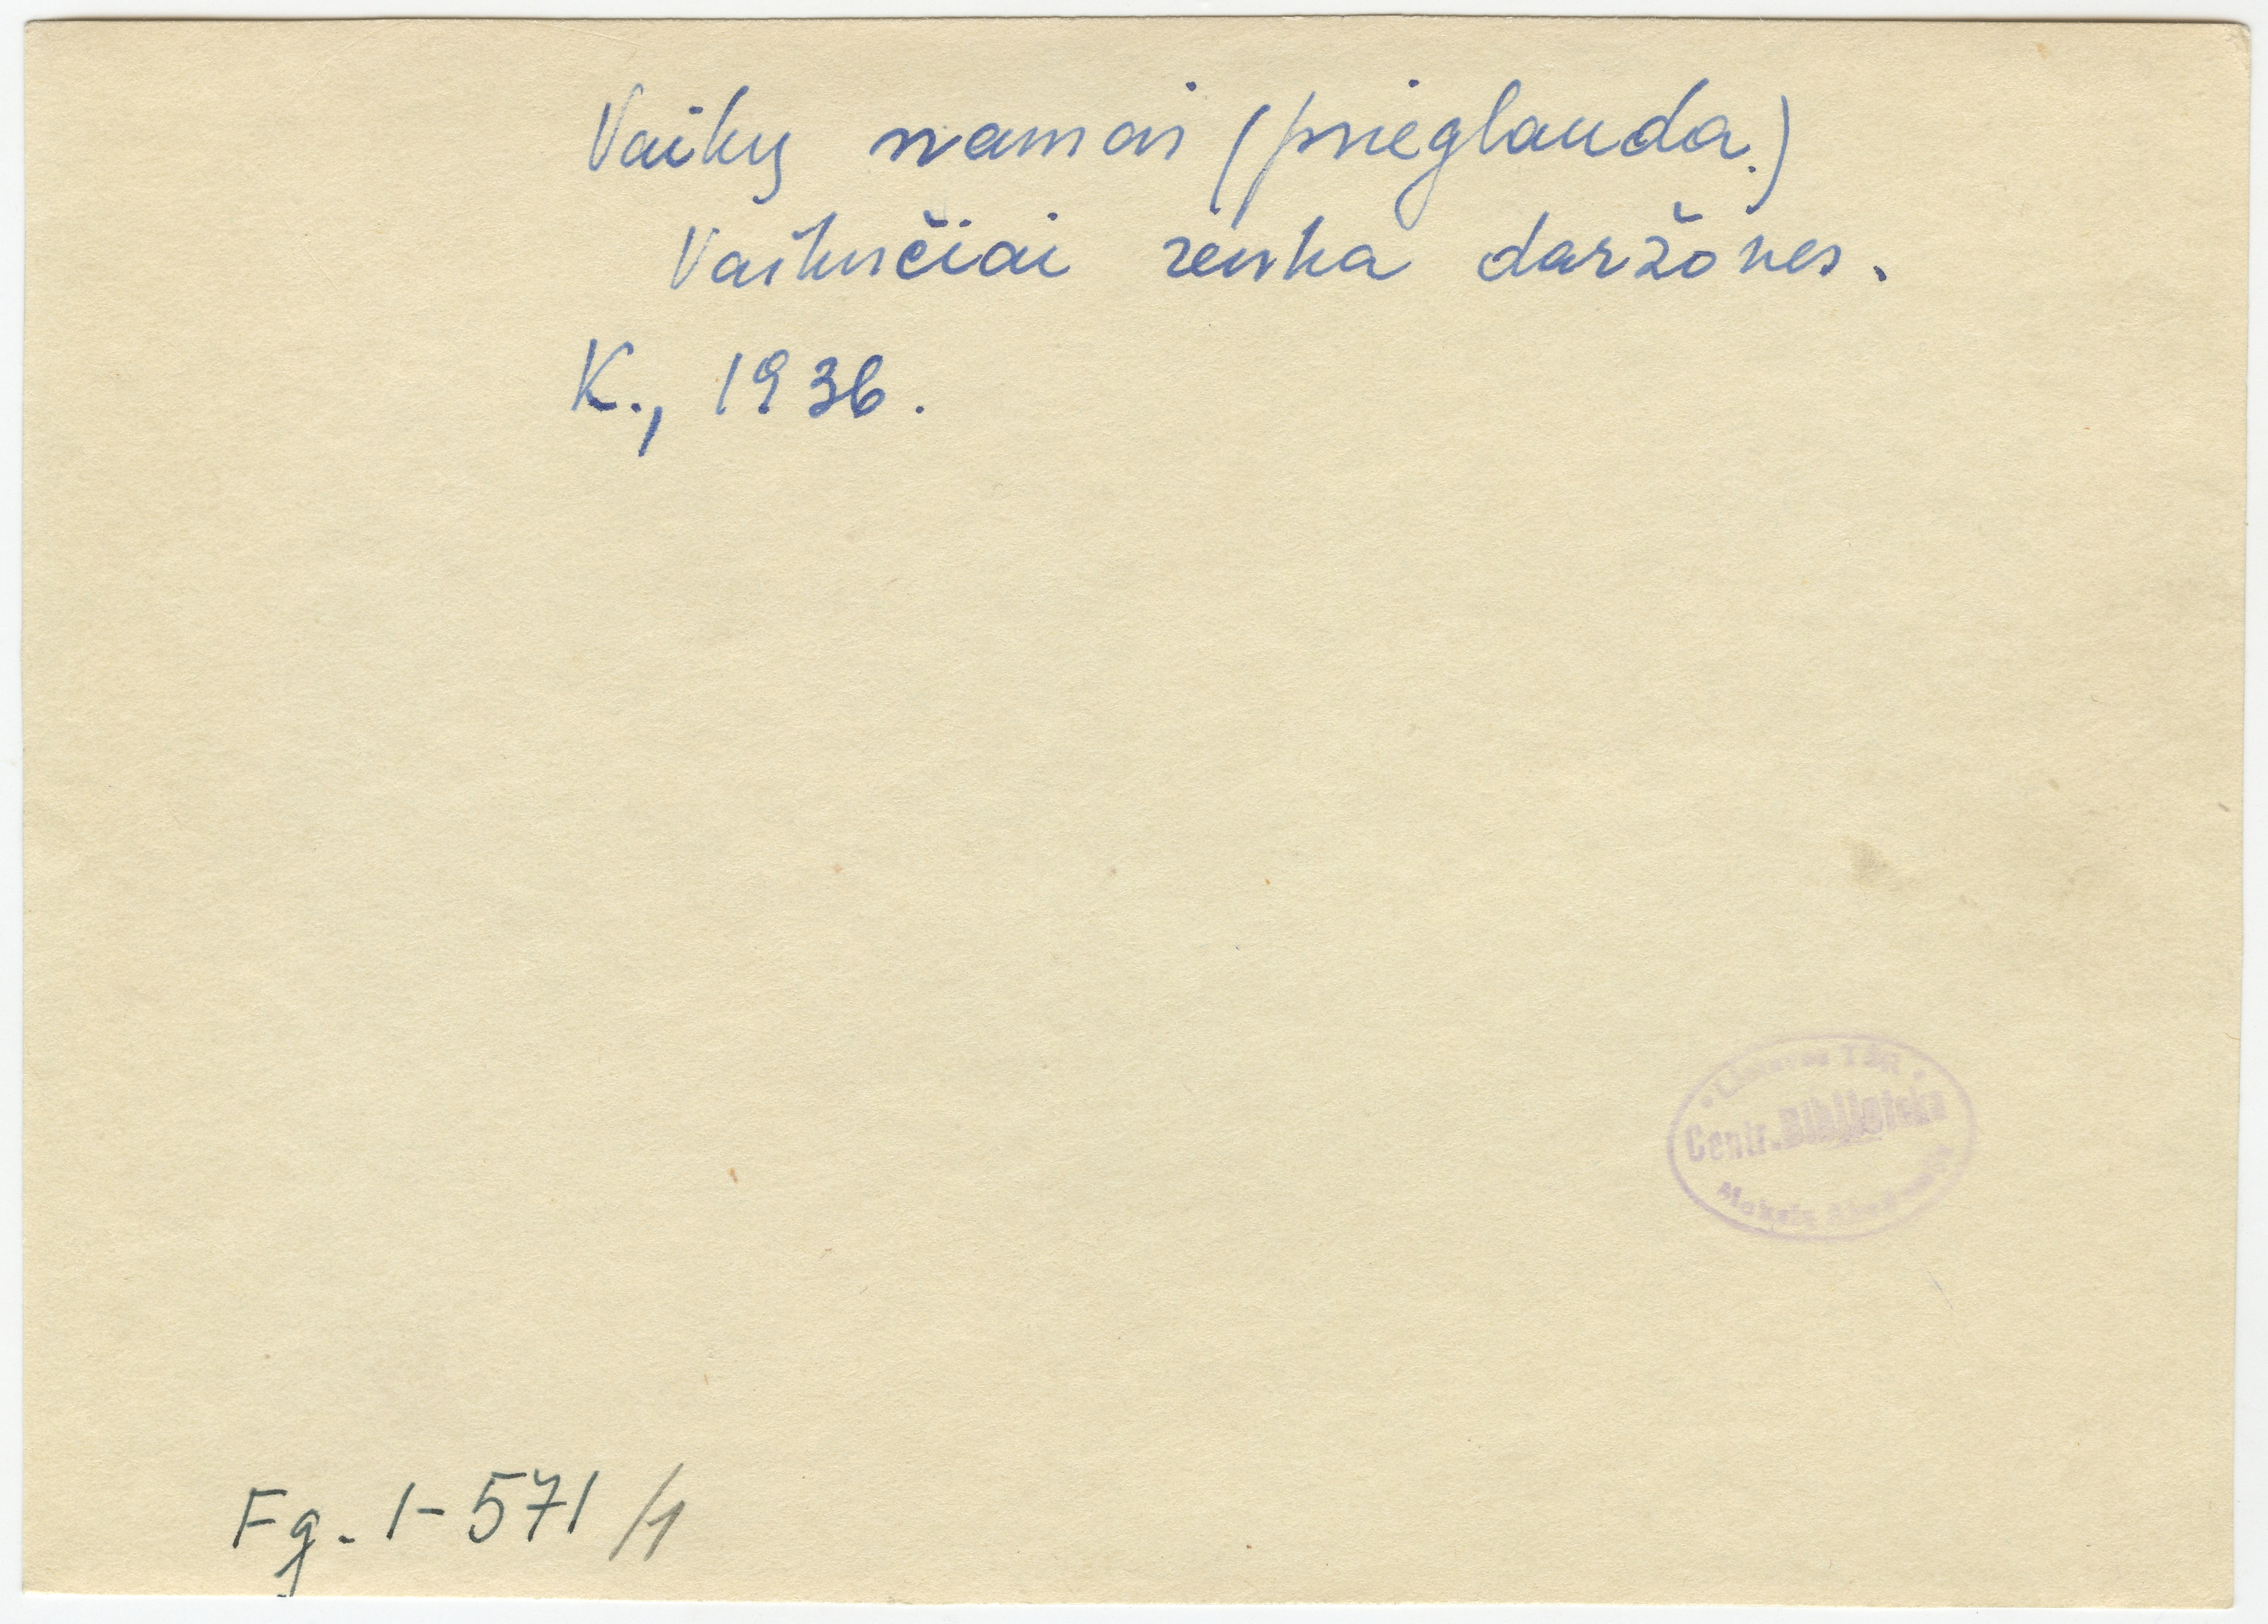 Vaikų namai (prieglauda.)
Vaikučiai renka daržoves.
K., 1936.
Lietuvos TSR
Centr. Biblioteka
Mokslų Akademijos
Fg. 1-571/1